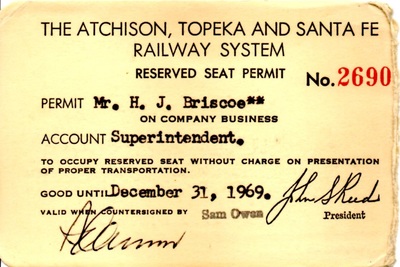 THE ATCHISON, TOPEKA AND SANTA FE
RAILWAY SYSTEM
RESERVED SEAT PERMIT
No. 2690
PERMIT Mr. H. J. Briscoe**
ON COMPANY BUSINESS
ACCOUNT Superintendent.
TO OCCUPY RESERVED SEAT WITHOUT CHARGE ON PRESENTATION
OF PROPER TRANSPORTATION.
GOOD UNTIL December 31, 1969. John S Reed
VALID WHEN COUNTERSIGNED BY Sam Owen President